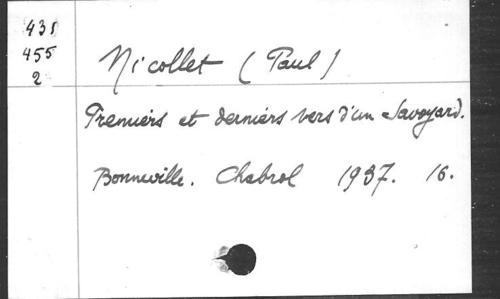 435
455
2
Nicollet (Paul)
Premiers et derniers vers d'un Savoyard.
Bonneville. Chabrol 1937. 16.